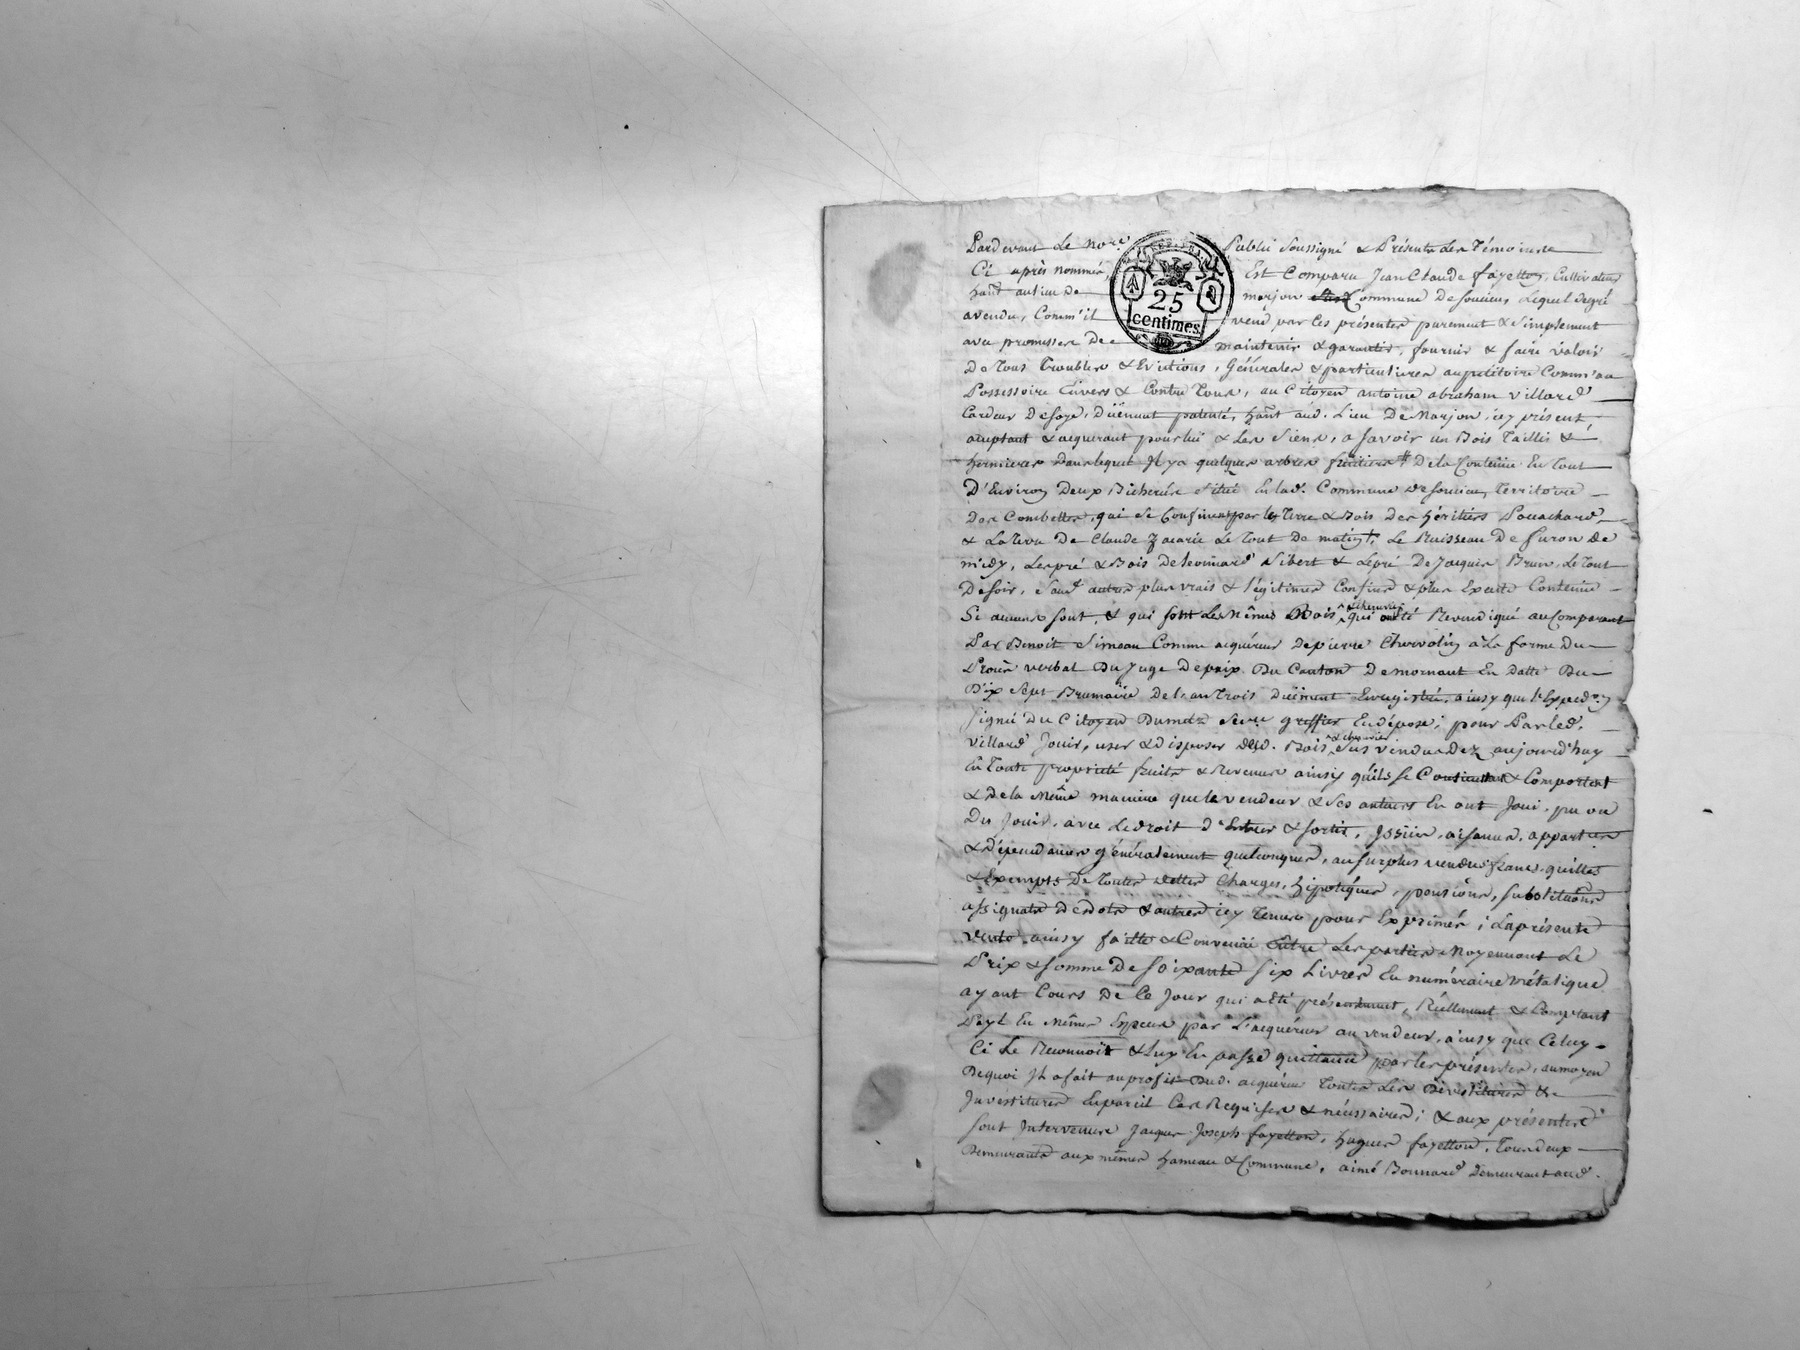 Pardevant Le nore Public Soussigné & Présents Les Témoins
Ci après nommés, Est Comparu Jean Claude fayetton, Cultivateur
hant au lieu de marjon Commune de Soucieu, Lequel de gré
a vendu, Comm'il vend par les présentes purement & Simplement
avec promesse de maintenir & garantir, fournir & faire valoir
De Tous Troubles & Evictions, Générales & particulieres au petitoire Comm'au
Possessoire Envers & Contre Tous, au Citoyen antoine abraham villard
Cardeur De Soye, Düement patenté, hant aud. Lieu De Marjon, icy présent,
aceptant & aequerant pour lui & Les Siens, a Savoir un Bois Taillis &
hermieres Dans lequel Il y a quelques arbres fruitiers De la Contenue En Tout
D'Environ Deux Bicherées Situé En lad. Commune de Soucieu, Territoire
Des Combettes, qui Se Confinent par les Terre & Bois Des héritiers Pouachard
& La Terre De Claude Zacarie Le Tout De matin, Le Ruisseau De furon de
midy, Les pré & Bois de Leonnard Sibert & Le pré De Jacques Brun, Le Tout
De Soir, Sauf autres plus vrais & légitimes Confins & plus Exacte Contenue
Si aucuns Sont, & qui font Les Mêmes Bois qui ont été Revendiqué au Comparant
Par Benoit Simeau Comme acquéreur De pierre Chervolin à La forme Du
Procès verbal Du Juge De paix Du Canton De mornant En Datte Du
Dix Sept Brumaire De l'an Trois Düement Enregistré, ainsy que l'Exped.on
Signé Du Citoyen Dumaz Secre greffier En dépose; pour Par led.
villard Jouir, user & Disposer desd. Bois Sus vendus Dez aujourd'huy
En Toute propriété fruits & Revenus ainsy qu'ils Se Contiennent & Comportent
& De la Même maniere que le vendeur & Ses auteurs En ont Joui, pu ou
Du Jouir, avec Le droit d'Entrer & Sortir, Issües, aisances, appartces
& Dépendances généralement quelconques, au Surplus vendus francs, quittes
& Exempts De Toutes dettes Charges, hipotéques, pensions, Substitutions
assignats De dots & autres icy Tenus pour Exprimés; La présente
vente ainsy faitte & Convenüe Entre Les parties Moyennant Le
Prix & Somme De Soixante Six Livres En numéraire Métalique
ayant Cours De Ce Jour qui a été présentement, Réellement & Comptant
Payé En Mêmes Espèces par L'acquéreur au vendeur, ainsy que Celuy
Ci Le Reconnoit & Luy En passe quittance par les présentes, au moyen
De quoi Il a fait au profit Dud. acquéreur Toutes Les Dévestitures &
Investitures En pareil Cas Requises & nécessaires; & aux présentes
Sont Intervenus Jacques Joseph fayetton, hugues fayetton, Tous deux
Demeurants aux mêmes hameau & Commune, aimé Bonnard Demeurant aud.
25
centimes